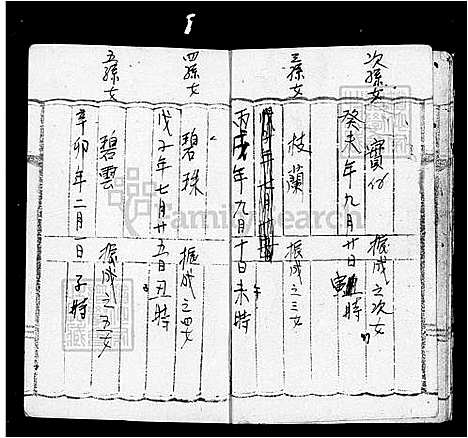 次孫女
寶
振成之次女
癸未年九月廿日寅時
三孫女
枝蘭
振成之三女
丙戌年九月十日未時
四孫女
碧珠
振成之四女
戊子年七月廿五日丑時
五孫女
碧雲
振成之五女
辛卯年二月一日子時
FamilySearch